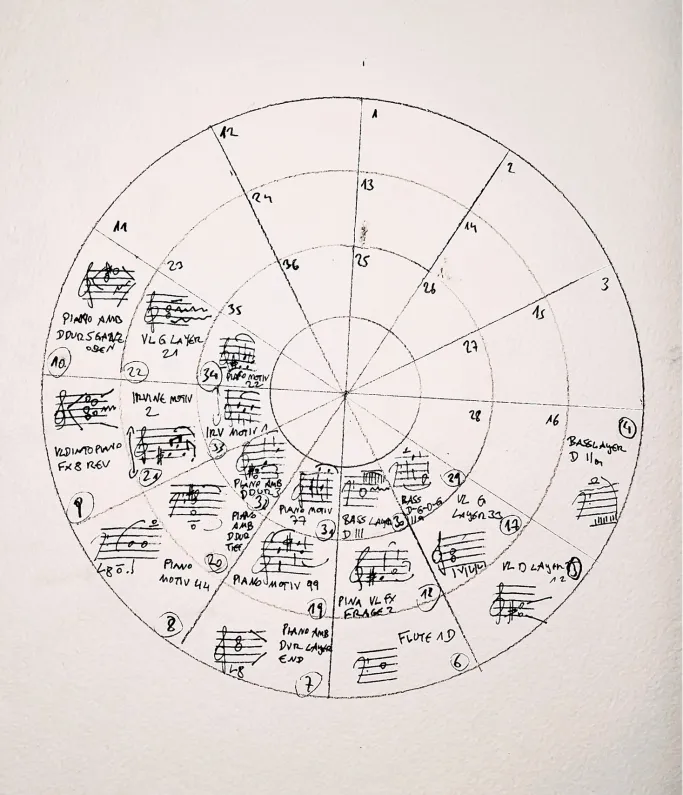 1
2
3
BASSLAYER
D II
4
VL D LAYER
12
5
FLUTE 1D
6
PIANO AMB
DUR LAYER
END
7
8
9
10
11
12
13
14
15
16
VL G
LAYER 33
17
PINA VL FX
FRAGE 2
18
PIANO MOTIV 99
19
PIANO
MOTIV 44
20
IRVINE MOTIV
2
21
VL G LAYER
21
22
23
24
25
26
27
28
BASS
D-G-D-G
29
BASS LAYER
D III
30
PIANO MOTIV
77
31
PIANO AMB
D DUR 3
32
PIANO
AMB
D DUR
TIEF
IRV MOTIV 1
33
PIANO MOTIV
22
34
35
36
PIANO AMB
VL D INTO PIANO
FX 8 REV
L8
L8